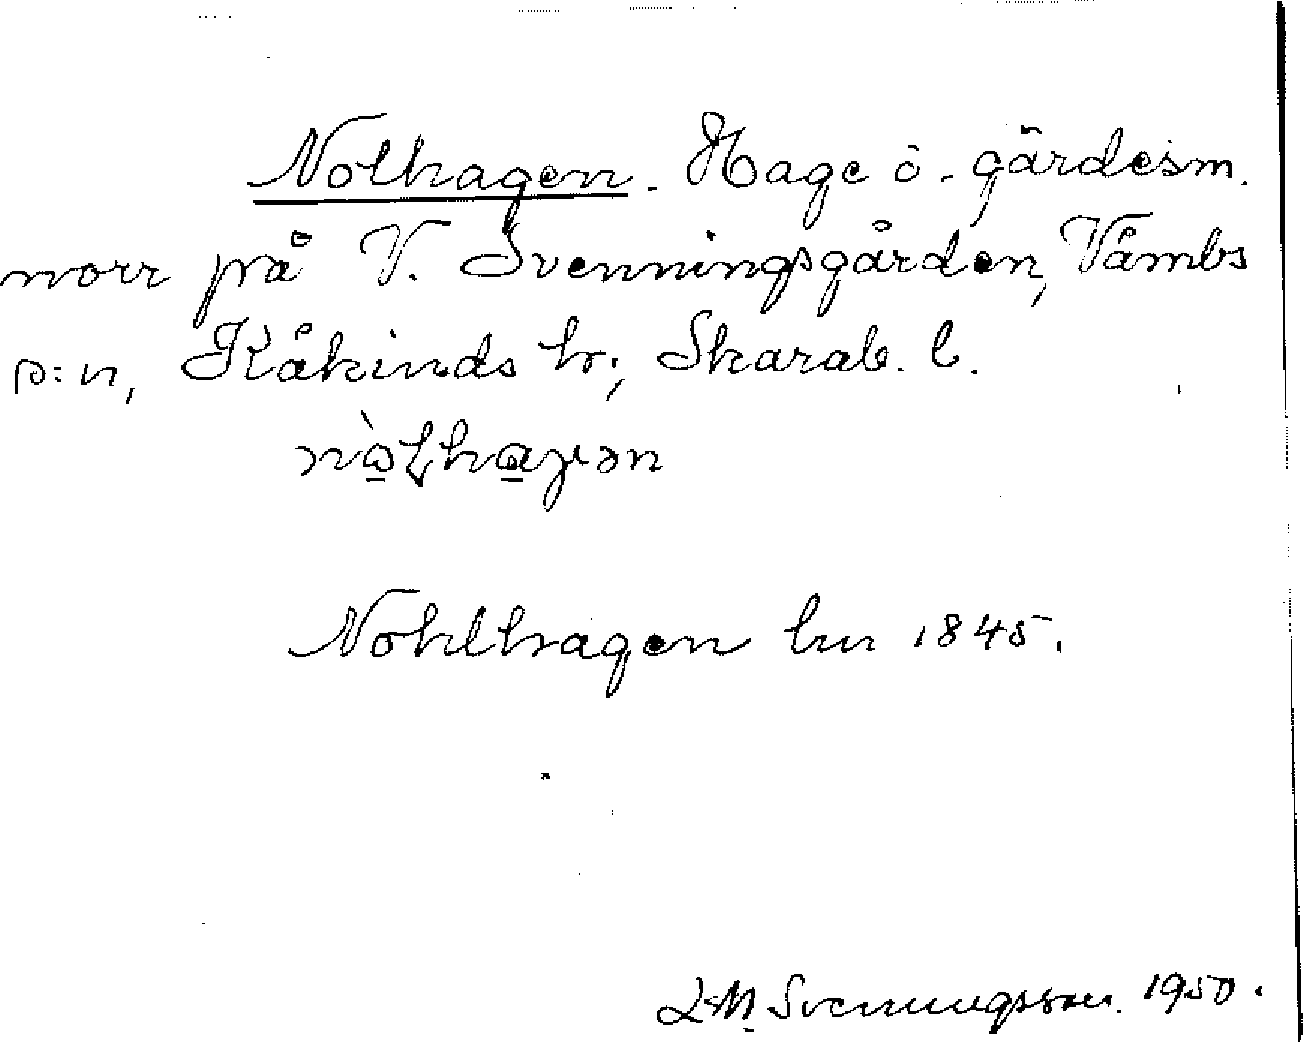 Nolhagen. Hage o. gärdesm.
norr på V. Svenningsgården, Våmbs
s:n, Kåkinds hr; Skarab. l.
Nohlhagen lm 1845.
L M Svenningsson. 1950.